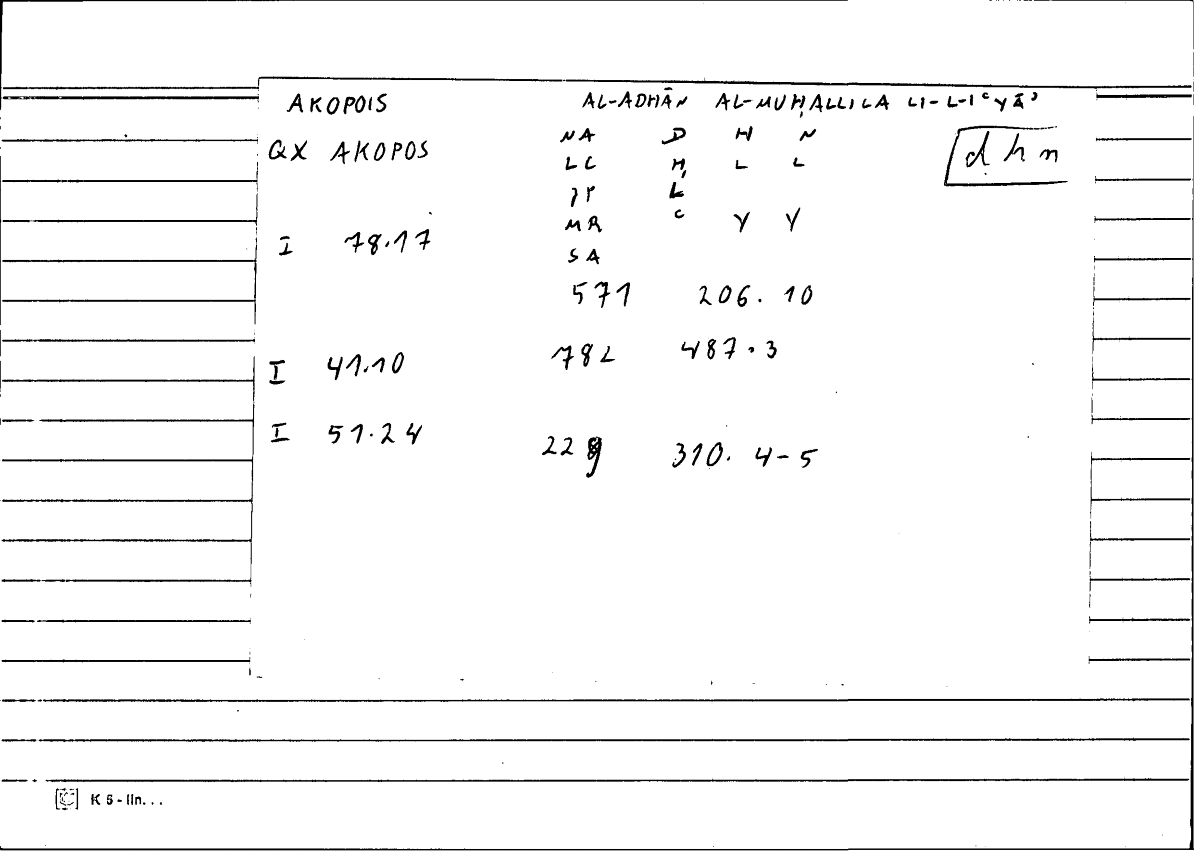 AKOPOIS AL-ADHĀN AL-MUḤALLILA LI-L-IʿYĀʾ
QX AKOPOS NA D H N dhn
LC Ḥ L L
L
I 78.17 MR C Y Y
SA
571 206. 10
I 41.10 782 487.3
I 51.24 229 310. 4-5
K 5 - lin. . .